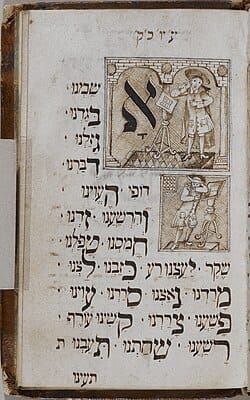 אשמנו ·
בגדנו ·
גזלנו ·
דברנו
דופי העוינו
והרשענו · זדנו ·
חמסנו · טפלנו
שקר · יעצנו רע · כזבנו · לצנו
מרדנו · נאצנו · סררנו · עוינו
פשענו · צררנו · קשינו עורף ·
רשענו · שחתנו · תעבנו ת
תעינו